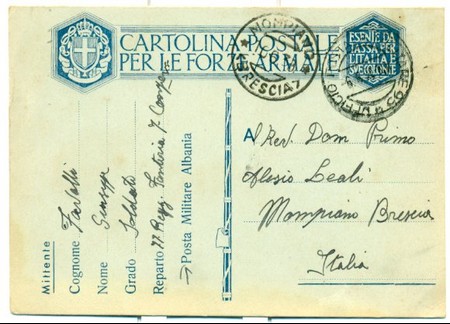 CARTOLINA POSTALE
PER LE FORZE ARMATE
ESENTE DA
TASSA PER
L'ITALIA E
SUE COLONIE
MOMPIANO
BRESCIA
Al Rev. Dom Primo
Alesio Leali
Mompiano Brescia
Italia
Mittente
Cognome
Nome Giuseppe
Grado Soldato
Reparto 77 Regg. Fanteria 7 Comp
Posta Militare Albania